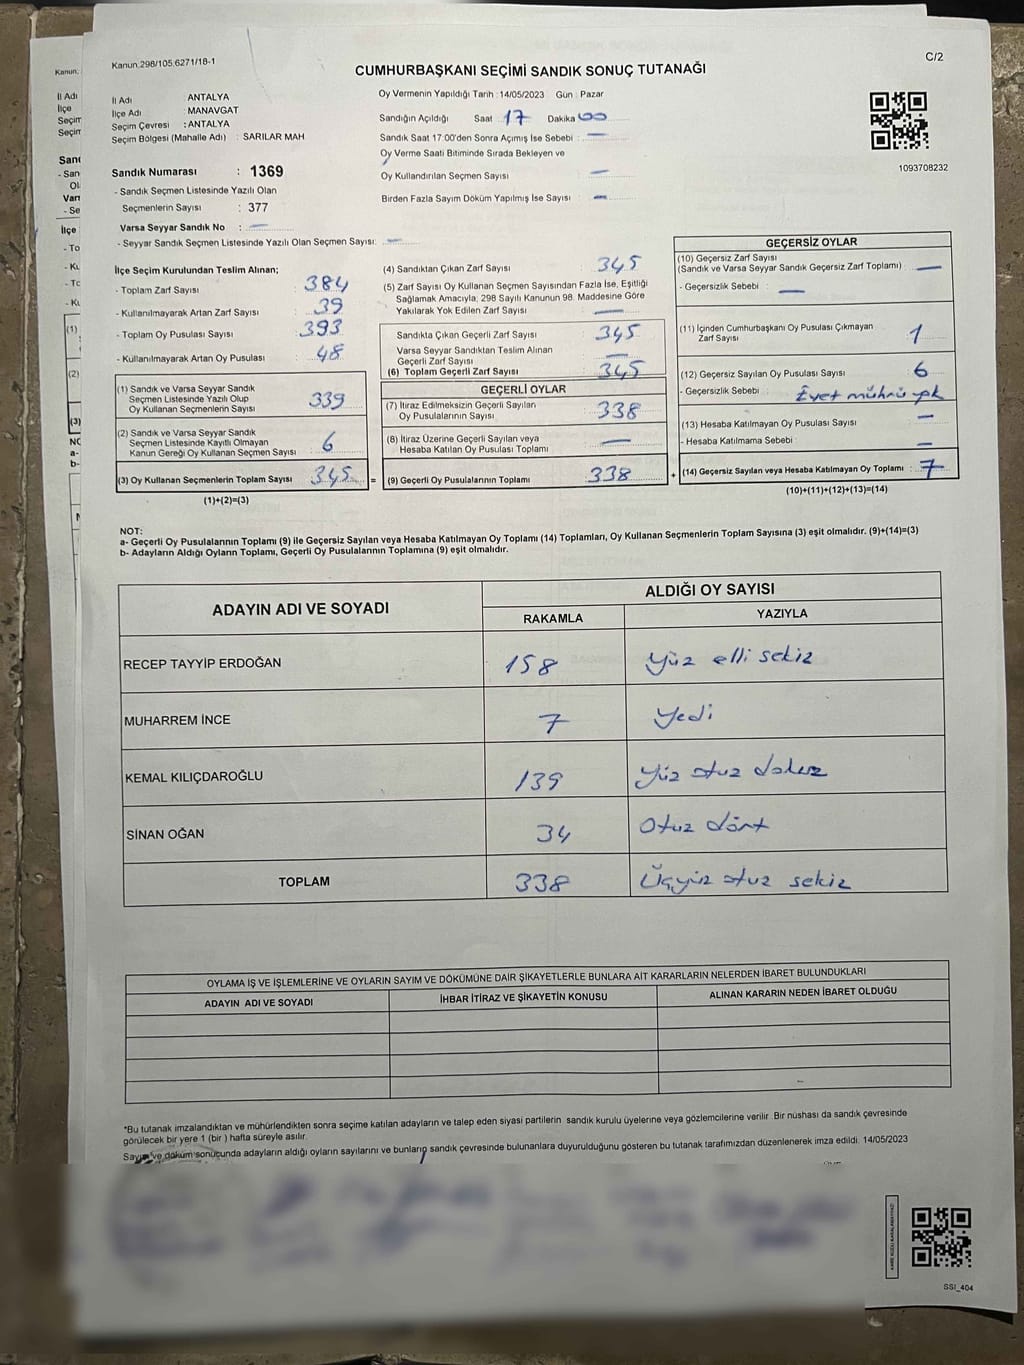 Kanun.298/105.6271/18-1
C/2
CUMHURBAŞKANI SEÇİMİ SANDIK SONUÇ TUTANAĞI
İl Adı ANTALYA
İlçe Adı : MANAVGAT
Seçim Çevresi : ANTALYA
Seçim Bölgesi (Mahalle Adı) : SARILAR MAH
Oy Vermenin Yapıldığı Tarih :14/05/2023 Gün : Pazar
Sandığın Açıldığı Saat 17 Dakika 00
Sandık Saat 17:00'den Sonra Açımış İse Sebebi : —
Oy Verme Saati Bitiminde Sırada Bekleyen ve
Oy Kullandırılan Seçmen Sayısı —
Birden Fazla Sayım Döküm Yapılmış İse Sayısı : —
1093708232
Sandık Numarası : 1369
- Sandık Seçmen Listesinde Yazılı Olan
Seçmenlerin Sayısı : 377
Varsa Seyyar Sandık No : —
- Seyyar Sandık Seçmen Listesinde Yazılı Olan Seçmen Sayısı: —
İlçe Seçim Kurulundan Teslim Alınan;
- Toplam Zarf Sayısı : 384
- Kullanılmayarak Artan Zarf Sayısı : 39
- Toplam Oy Pusulası Sayısı : 393
- Kullanılmayarak Artan Oy Pusulası : 48
(1) Sandık ve Varsa Seyyar Sandık
Seçmen Listesinde Yazılı Olup
Oy Kullanan Seçmenlerin Sayısı 339
(2) Sandık ve Varsa Seyyar Sandık
Seçmen Listesinde Kayıtlı Olmayan
Kanun Gereği Oy Kullanan Seçmen Sayısı : 6
(3) Oy Kullanan Seçmenlerin Toplam Sayısı : 345 =
(1)+(2)=(3)
(4) Sandıktan Çıkan Zarf Sayısı : 345
(5) Zarf Sayısı Oy Kullanan Seçmen Sayısından Fazla İse, Eşitliği
Sağlamak Amacıyla, 298 Sayılı Kanunun 98. Maddesine Göre
Yakılarak Yok Edilen Zarf Sayısı : —
Sandıkta Çıkan Geçerli Zarf Sayısı : 345
Varsa Seyyar Sandıktan Teslim Alınan
Geçerli Zarf Sayısı : —
(6) Toplam Geçerli Zarf Sayısı : 345
GEÇERLİ OYLAR
(7) İtiraz Edilmeksizin Geçerli Sayılan
Oy Pusulalarının Sayısı : 338
(8) İtiraz Üzerine Geçerli Sayılan veya
Hesaba Katılan Oy Pusulası Toplamı : —
(9) Geçerli Oy Pusulalarının Toplamı : 338 +
GEÇERSİZ OYLAR
(10) Geçersiz Zarf Sayısı
(Sandık ve Varsa Seyyar Sandık Geçersiz Zarf Toplamı) : —
- Geçersizlik Sebebi : —
(11) İçinden Cumhurbaşkanı Oy Pusulası Çıkmayan
Zarf Sayısı : 1
(12) Geçersiz Sayılan Oy Pusulası Sayısı : 6
- Geçersizlik Sebebi : Evet mührü yok
(13) Hesaba Katılmayan Oy Pusulası Sayısı : —
- Hesaba Katılmama Sebebi : —
(14) Geçersiz Sayılan veya Hesaba Katılmayan Oy Toplamı : 7
(10)+(11)+(12)+(13)=(14)
NOT:
a- Geçerli Oy Pusulalarının Toplamı (9) ile Geçersiz Sayılan veya Hesaba Katılmayan Oy Toplamı (14) Toplamları, Oy Kullanan Seçmenlerin Toplam Sayısına (3) eşit olmalıdır. (9)+(14)=(3)
b- Adayların Aldığı Oyların Toplamı, Geçerli Oy Pusulalarının Toplamına (9) eşit olmalıdır.
ADAYIN ADI VE SOYADI ALDIĞI OY SAYISI
RAKAMLA YAZIYLA
RECEP TAYYİP ERDOĞAN 158 Yüz elli sekiz
MUHARREM İNCE 7 Yedi
KEMAL KILIÇDAROĞLU 139 Yüz otuz dokuz
SİNAN OĞAN 34 Otuz dört
TOPLAM 338 Üçyüz otuz sekiz
OYLAMA İŞ VE İŞLEMLERİNE VE OYLARIN SAYIM VE DÖKÜMÜNE DAİR ŞİKAYETLERLE BUNLARA AİT KARARLARIN NELERDEN İBARET BULUNDUKLARI
ADAYIN ADI VE SOYADI İHBAR İTİRAZ VE ŞİKAYETİN KONUSU ALINAN KARARIN NEDEN İBARET OLDUĞU
*Bu tutanak imzalandıktan ve mühürlendikten sonra seçime katılan adayların ve talep eden siyasi partilerin sandık kurulu üyelerine veya gözlemcilerine verilir. Bir nüshası da sandık çevresinde
görülecek bir yere 1 (bir ) hafta süreyle asılır.
Sayım ve döküm sonucunda adayların aldığı oyların sayılarını ve bunların sandık çevresinde bulunanlara duyurulduğunu gösteren bu tutanak tarafımızdan düzenlenerek imza edildi. 14/05/2023
SSI_404